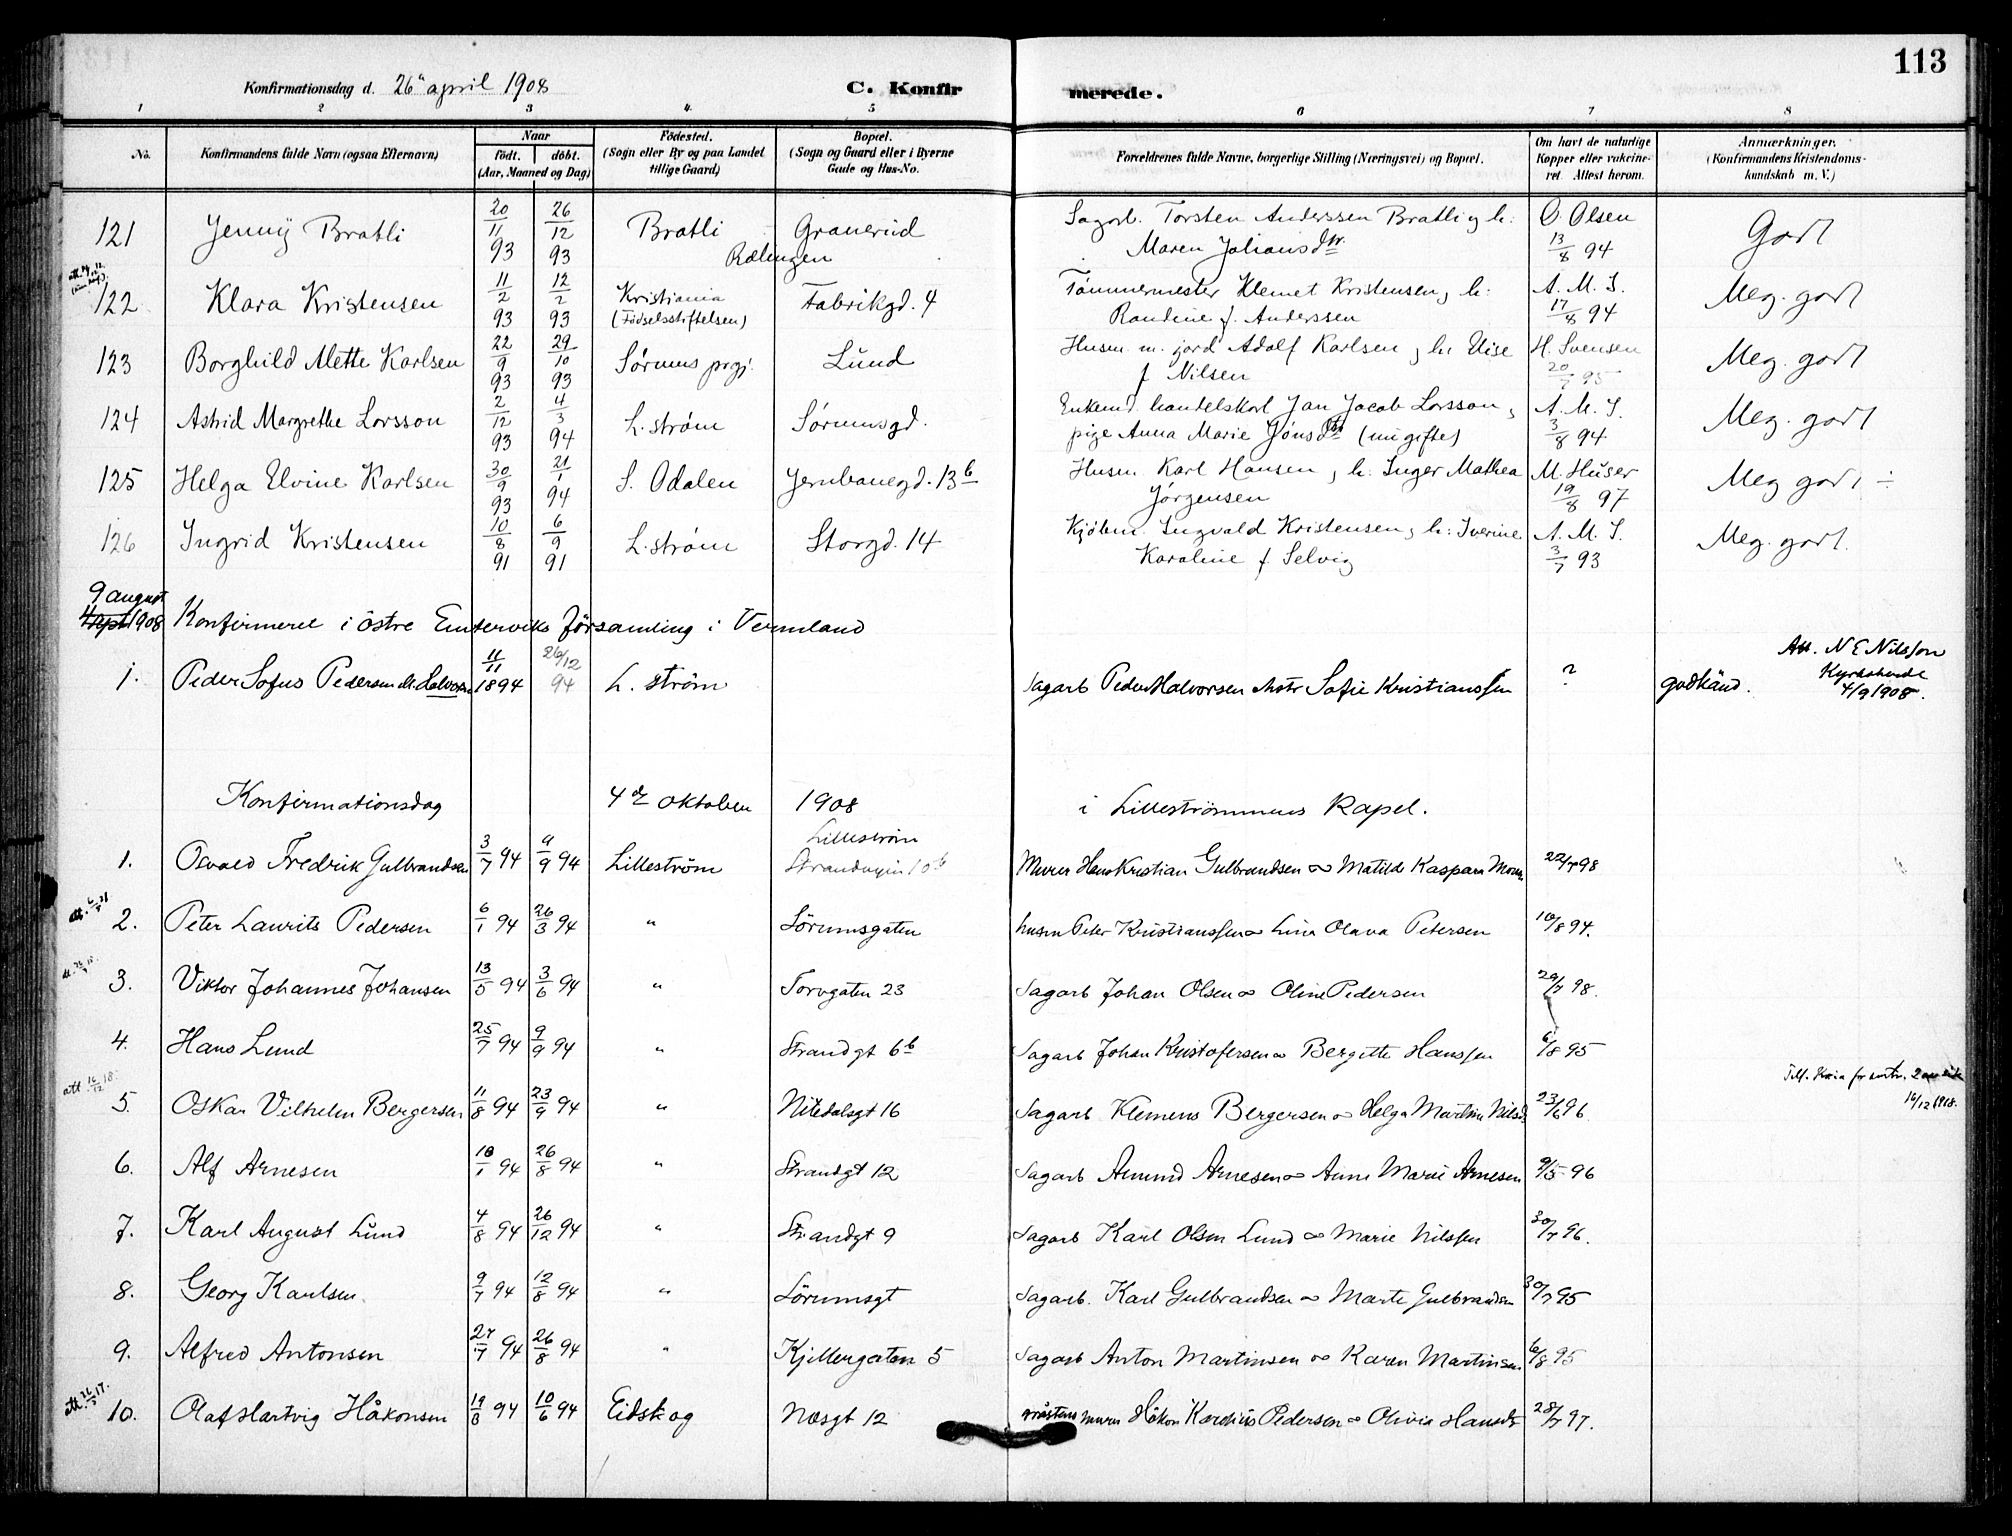 113
Konfirmationsdag d. 26 april 1908 C. Konfir merede.
1 2 3 4 5 6 7 8
No. Konfirmandens fulde Navn (ogsaa Efternavn) Naar født. døbt. (Aar, Maaned og Dag) Fødested. (Sogn eller By og paa Landet tillige Gaard) Bopæl. (Sogn og Gaard eller i Byerne Gade og Hus-No. Forældrenes fulde Navne, borgerlige Stilling (Næringsvei) og Bopæl. Om havt de naturlige Kopper eller vakcineret. Attest herom. Anmærkninger. (Konfirmandens Kristendomskundskab m. V.)
121 Jenny Bratli 20/11 93 26/12 93 Bratli Granerud Rælingen Sagarb. Torsten Anderssen Bratli og h: Maren Johansdtr. O. Olsen 13/8 94 Godt
122 Klara Kristensen 11/2 93 12/2 93 Kristiania (Fødselsstiftelsen) Fabrikgd. 4 Tømmermester Klemet Kristensen, h: Randine f. Anderssen A. M. S. 17/8 94 Meg. godt
123 Borghild Alette Karlsen 22/9 93 29/10 93 Sørums prgj. Lund Husm. m. jord Adolf Karlsen, h: Elise f Nilsen H. Svensen 20/7 95 Meg. godt
124 Astrid Margrethe Larsson 2/12 93 4/3 94 L.strøm Sørumsgd. Enkemd. handelskarl Jan Jacob Larsson, pige Anna Marie Jönsdtr (ungifte) A. M. S. 3/8 94 Meg. godt
125 Helga Elvine Karlsen 30/9 93 21/1 94 S. Odalen Jernbanegd. 13b Husm Karl Hansen, h: Inger Mathea Jørgensen M. Huser 19/8 97 Meg godt ÷
126 Ingrid Kristensen 10/8 91 6/9 91 L.strøm Storgd. 14 Kjøbm. Ingvald Kristensen, h: Iverine Karoline f Selvig A. M. S. 3/7 93 Meg. godt.
9 august
1908 Konfirmeret i östre Emterviks församling i Vermland
1. Peder Sofus Pedersen 11/11 1894 26/12 94 L. ström Sagarb Peder Halvorsen Sofie Kristianssen ? godkänd. Att. N E Nilsson
Kyrkoherde
4/9 1908.
Konfirmationsdag 4de oktober 1908 i Lilleströmmens Kapel.
1. Osvald Fredrik Gulbrandsen 3/7 94 9/9 94 Lilleström Lilleström Strandveien 10b Murer Hans Kristian Gulbrandsen ∞ Matilde Kaspara 22/7 98
2. Peter Laurits Pedersen 6/1 94 26/3 94 " Sörumsgaten husm Peter Kristianssen ∞ Lina Olava Petersen 10/8 94.
3. Viktor Johannes Johansen 13/5 94 3/6 94 " Torvgaten 23 Sagarb Johan Olsen ∞ Oline Pedersen 29/7 98.
4. Hans Lund 25/7 94 9/9 94 " Strandgt 6b Sagarb Johan Kristofersen ∞ Bergitte Hanssen 6/8 95
5. Oskar Vilhelm Bergersen 11/8 94 23/9 94 " Nitedalsgt 16 Sagarb Klemens Bergersen ∞ Helga Martine Nilsd 23/6 96. 16/12 1918.
6. Alf Arnesen 18/1 94 26/8 94 " Strandgt 12 Sagarb Amund Arnesen ∞ Anne Marie Arnesen 9/5 96
7. Karl August Lund 4/8 94 26/12 94 " Strandgt 9 Sagarb Karl Olsen Lund ∞ Marie Nilssen 30/7 96.
8. Georg Karlsen 9/7 94 12/8 94 " Sörumsgt Sagarb. Karl Gulbrandsen ∞ Marte Gulbrandsen 30/7 95
9. Alfred Antonsen 27/7 94 26/8 94 " Kjillergaten 5 Sagarb Anton Martinsen ∞ Karen Martinsen 6/8 95
10. Olaf Hartvig Håkonsen 19/3 94 10/6 94 Eidskog Næsgt 12 murer Håkon Pedersen ∞ Olivia Hansdtr 28/7 97.